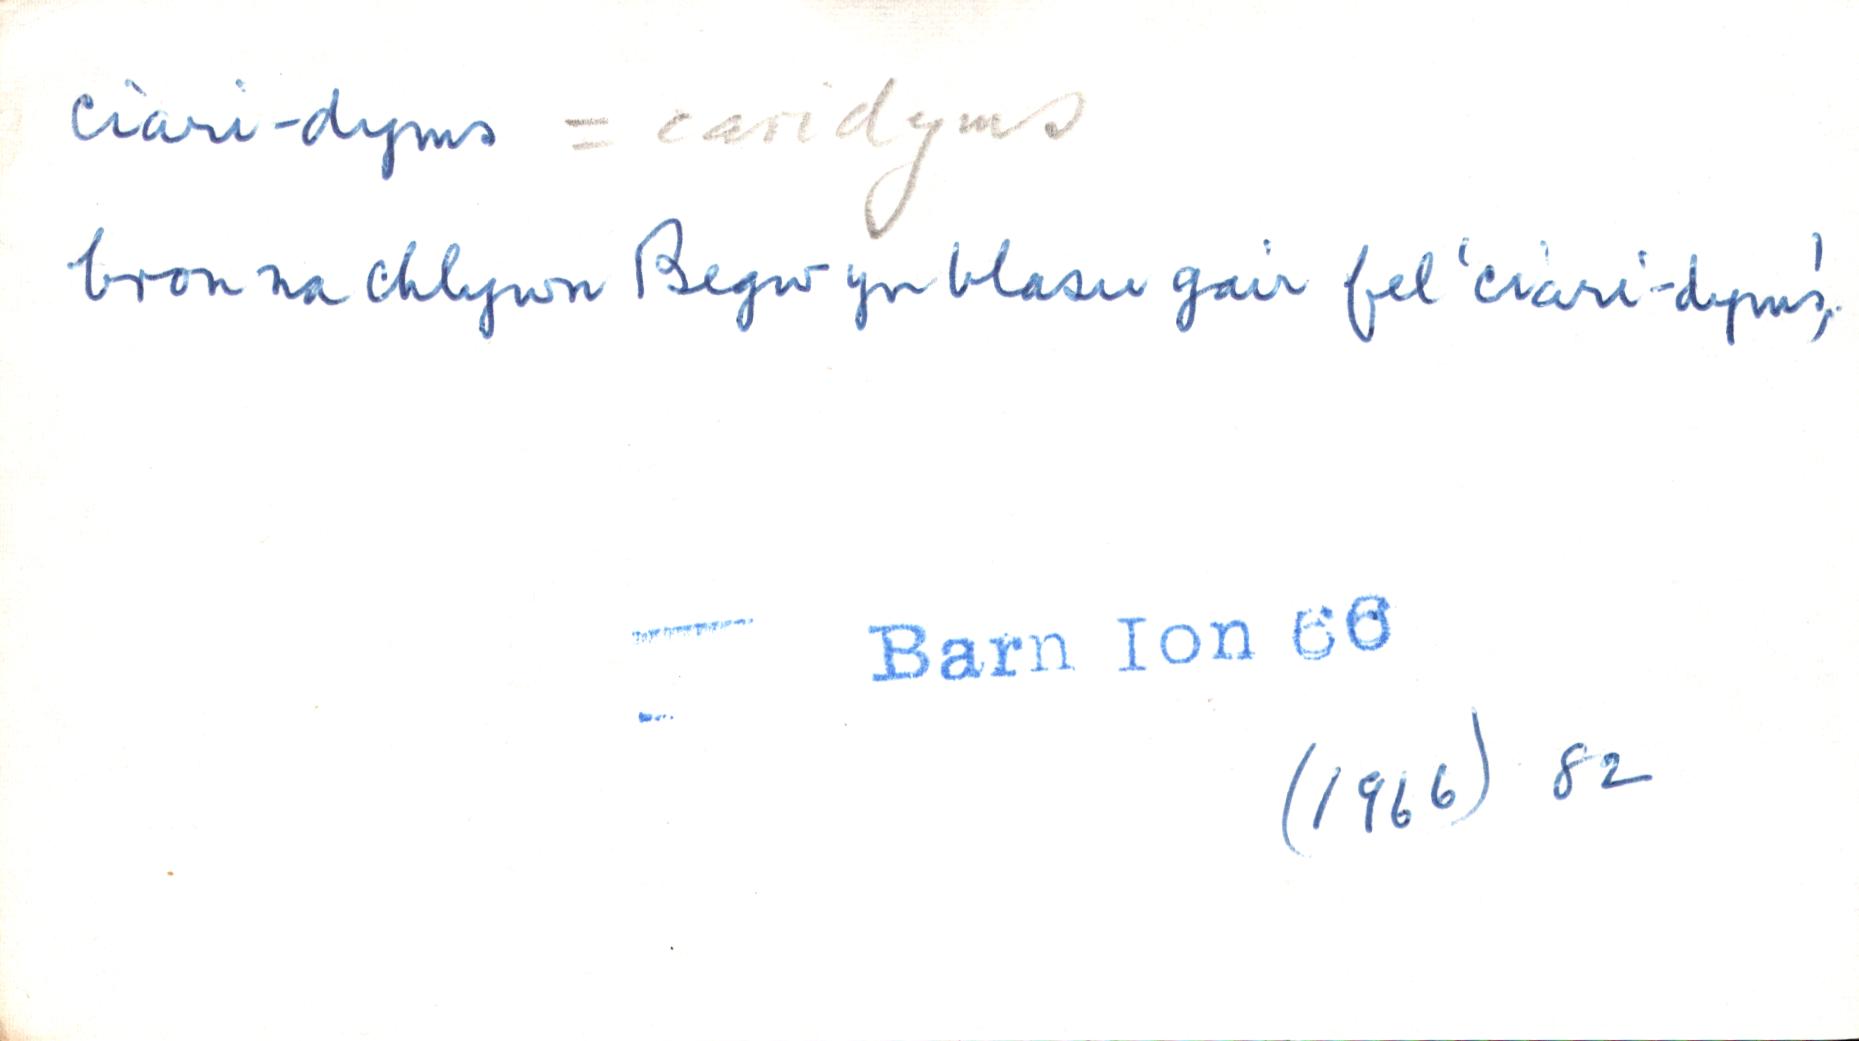 ciari-dyms = caridyms
bron na chlywn Begw yn blasu gair fel 'ciari-dyms',
Barn Ion 66
(1966) 82